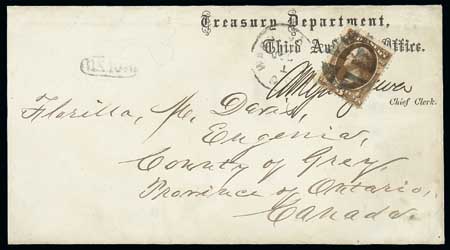 Treasury Department,
Third Office.
Chief Clerk.
Florilla, M. Davis,
Eugenia,
County of Grey,
Province of Ontario,
Canada.